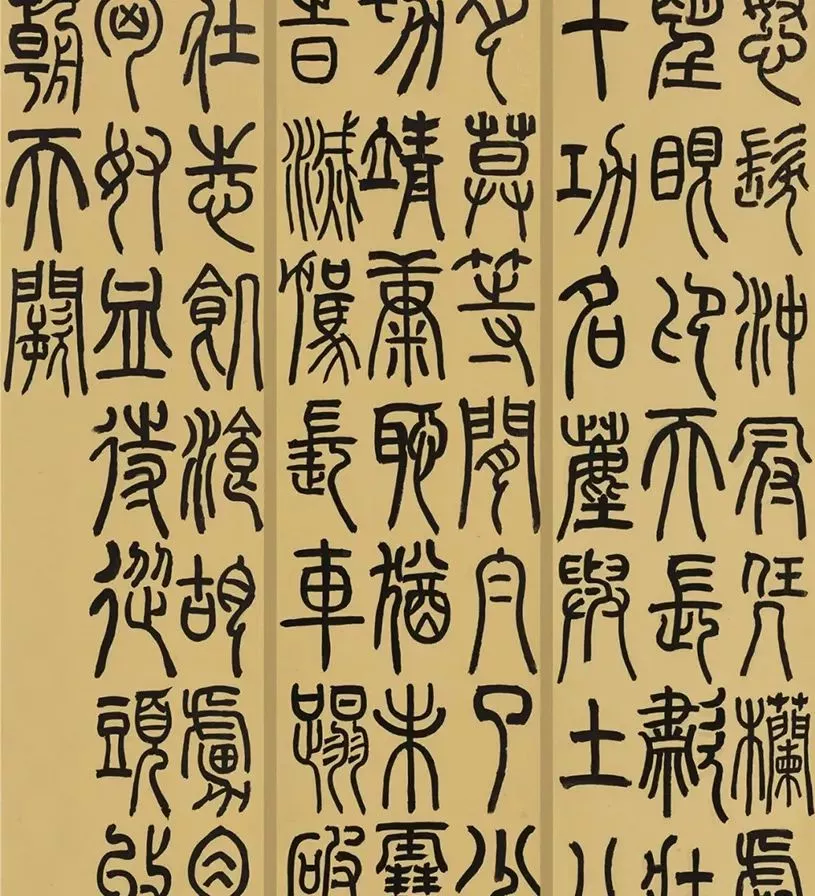 怒髮沖冠凭欄處
望眼卬天長嘯壯
十功名塵與土八
月莫等閒白了少
切靖康恥猶未雪
時滅駕長車踏破
壯志飢飡胡虜肉
匈奴血待從頭收
朝天闕